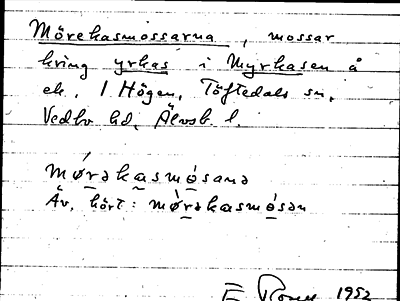 Mörekasmossarna, mossar
kring yrkas i Myrkasen å
ek. 1 Högen, Töftedals sn,
Vedbo hd, Älvsb. l.
mǿrəkasmósanə
Äv. hört: mǿrəkasmósən
1952